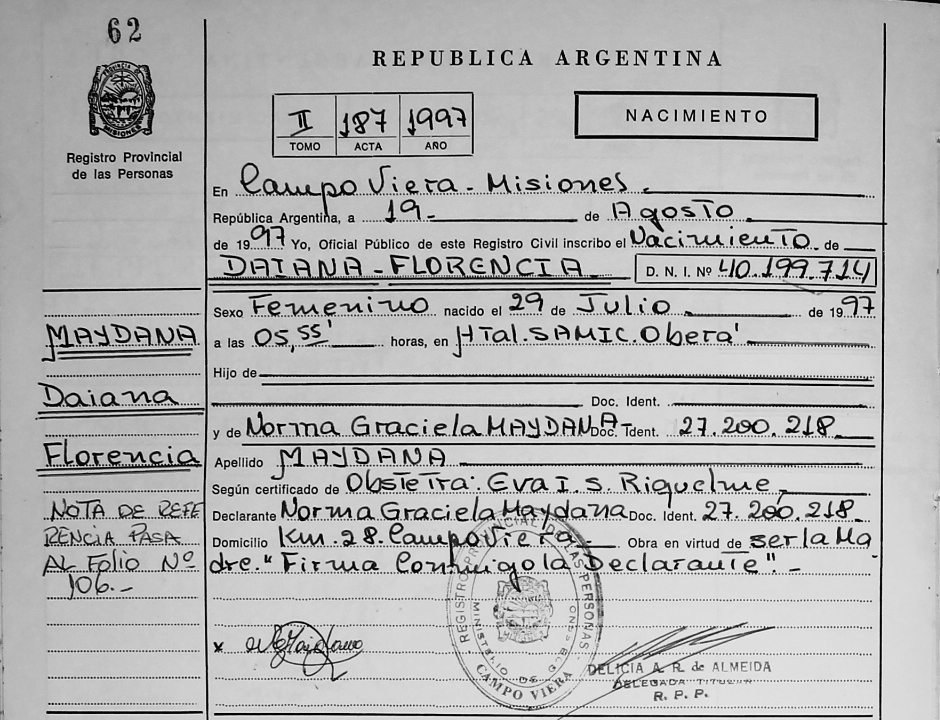 62
PROVINCIA DE
MISIONES
Registro Provincial
de las Personas
REPUBLICA ARGENTINA
II 187 1997
TOMO ACTA AÑO
NACIMIENTO
En Campo Viera - Misiones.
República Argentina, a 19- de Agosto
de 1997 Yo, Oficial Público de este Registro Civil inscribo el Nacimiento de
DAIANA - FLORENCIA D. N. I. Nº 40.199.714
Sexo Femenino nacido el 29 de Julio de 1997
a las 05,55' horas, en Htal. SAMIC. Oberá
Hijo de
Doc. Ident.
y de Norma Graciela MAYDANA Doc. Ident. 27.200.218
Apellido MAYDANA
Según certificado de Obstetra: Eva I. S. Riquelme,
Declarante Norma Graciela Maydana Doc. Ident. 27.200.218.
Domicilio Km. 28. Campo Viera Obra en virtud de ser la Ma
dre. "Firma Conmigo la Declarante". -
MAYDANA
Daiana
Florencia
NOTA DE REFE
RENCIA PASA
AL FOLIO Nº
106.-
x
REGISTRO PROVINCIAL DE LAS PERSONAS
MINISTERIO DE GOB.
CAMPO VIERA
DELICIA A. R. de ALMEIDA
DELEGADA TITULAR
R. P. P.